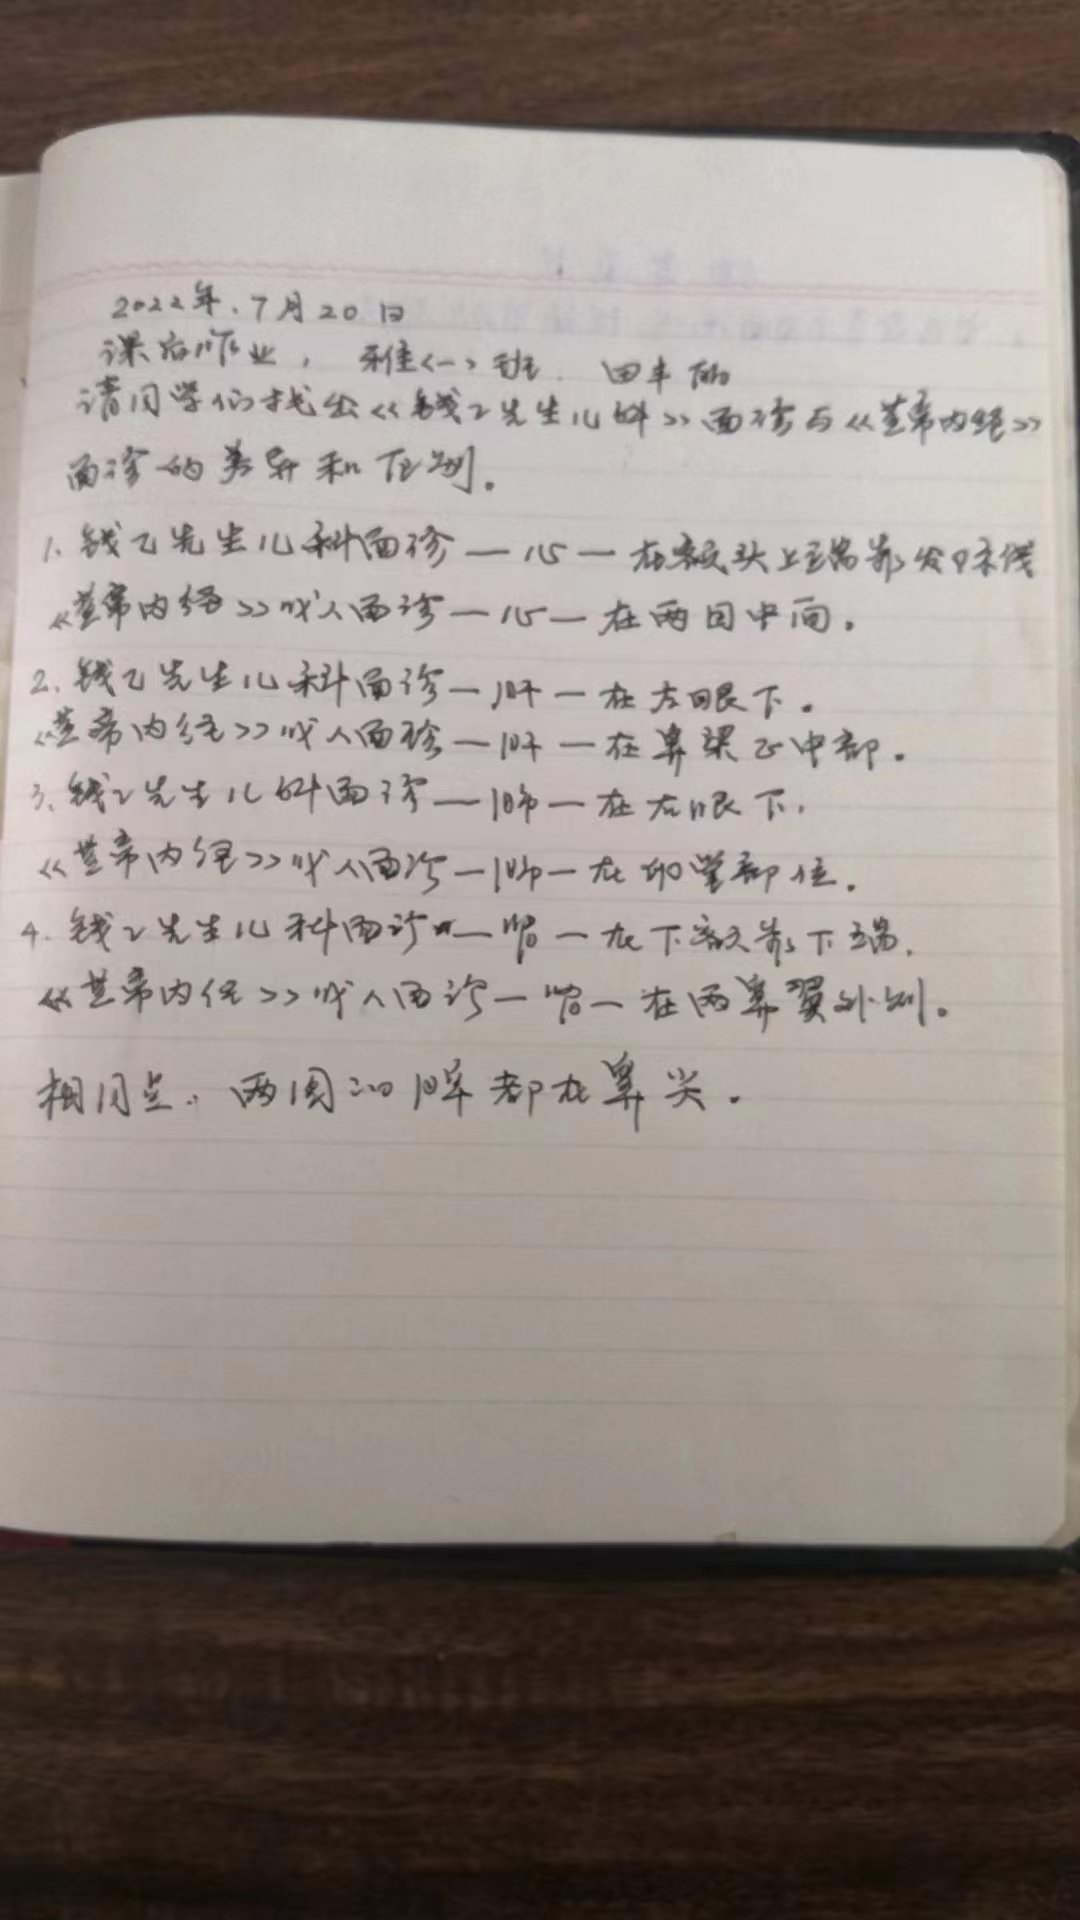 2022年.7月20日
课后作业， 雅<一>班.
请同学们找出《钱乙先生儿科》面诊与《黄帝内经》
面诊的差异和区别。
1、钱乙先生儿科面诊—心—在额头上端靠发际线
《黄帝内经》成人面诊—心—在两目中间。
2、钱乙先生儿科面诊—肝—在左眼下。
《黄帝内经》成人面诊—肝—在鼻梁正中部。
3、钱乙先生儿科面诊—肺—在右眼下，
《黄帝内经》成人面诊—肺—在印堂部位。
4、钱乙先生儿科面诊—肾—在下颏靠下端，
《黄帝内经》成人面诊—肾—在两鼻翼外侧。
相同点：两图的脾都在鼻尖。